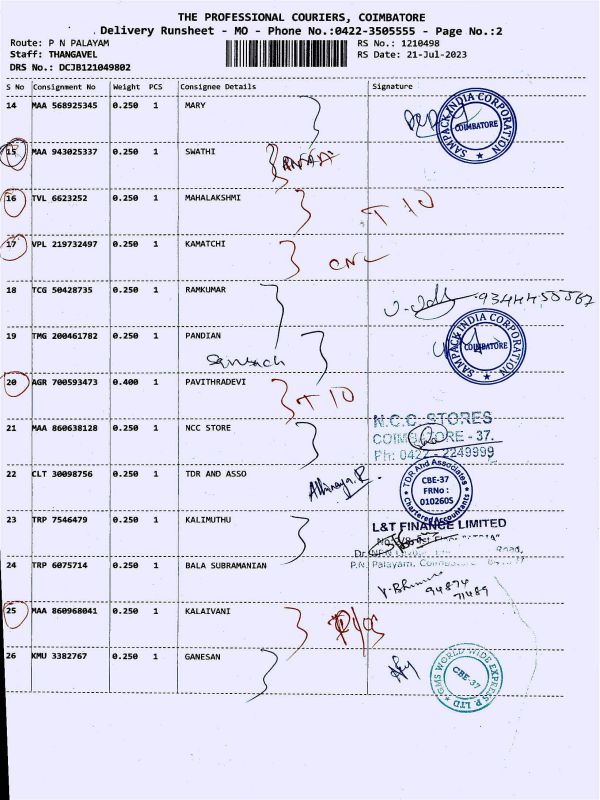 THE PROFESSIONAL COURIERS, COIMBATORE
Delivery Runsheet - MO - Phone No.:0422-3505555 - Page No.:2
Route: P N PALAYAM RS No.: 1210498
Staff: THANGAVEL RS Date: 21-Jul-2023
DRS No.: DCJB121049802
S No Consignment No Weight PCS Consignee Details Signature
14 MAA 568925345 0.250 1 MARY
SAMPACK INDIA CORPORATION COIMBATORE
15 MAA 943025337 0.250 1 SWATHI
16 TVL 6623252 0.250 1 MAHALAKSHMI
T 10
17 VPL 219732497 0.250 1 KAMATCHI
CNL
18 TCG 50428735 0.250 1 RAMKUMAR
19 TMG 200461782 0.250 1 PANDIAN
SAMPACK INDIA CORPORATION COIMBATORE
20 AGR 700593473 0.400 1 PAVITHRADEVI
T 10
21 MAA 860638128 0.250 1 NCC STORE
N.C.C. STORES
COIMBATORE - 37.
Ph: 0422 - 2249999
22 CLT 30098756 0.250 1 TDR AND ASSO
TDR And Associates
CBE-37
FRNo :
010260S
Chartered Accountants
23 TRP 7546479 0.250 1 KALIMUTHU
L&T FINANCE LIMITED
Road,
24 TRP 6075714 0.250 1 BALA SUBRAMANIAN
P.N. Palayam, Coimbatore
94874
71489
25 MAA 860968041 0.250 1 KALAIVANI
26 KMU 3382767 0.250 1 GANESAN
GMS WORLD WIDE EXPRESS P LTD CBE-37